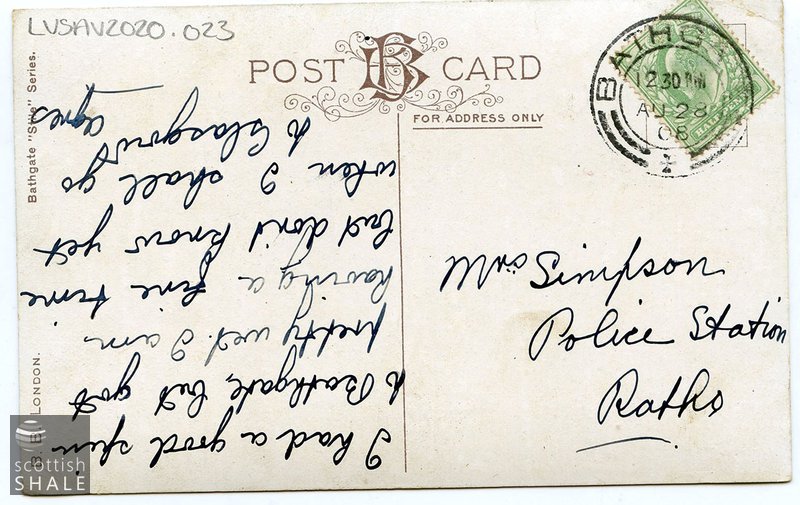 LVSAV2020.023
POST CARD
FOR ADDRESS ONLY
BATHGATE
12.30 PM
AU 28
08
Bathgate "Silk" Series.
LONDON.
I had a good spin
to Bathgate, but got
pretty wet. I am
having a fine time
but don't know yet
when I shall go
to Glasgow
Agnes
Simpson
Police Station
Ratho
scottish
SHALE